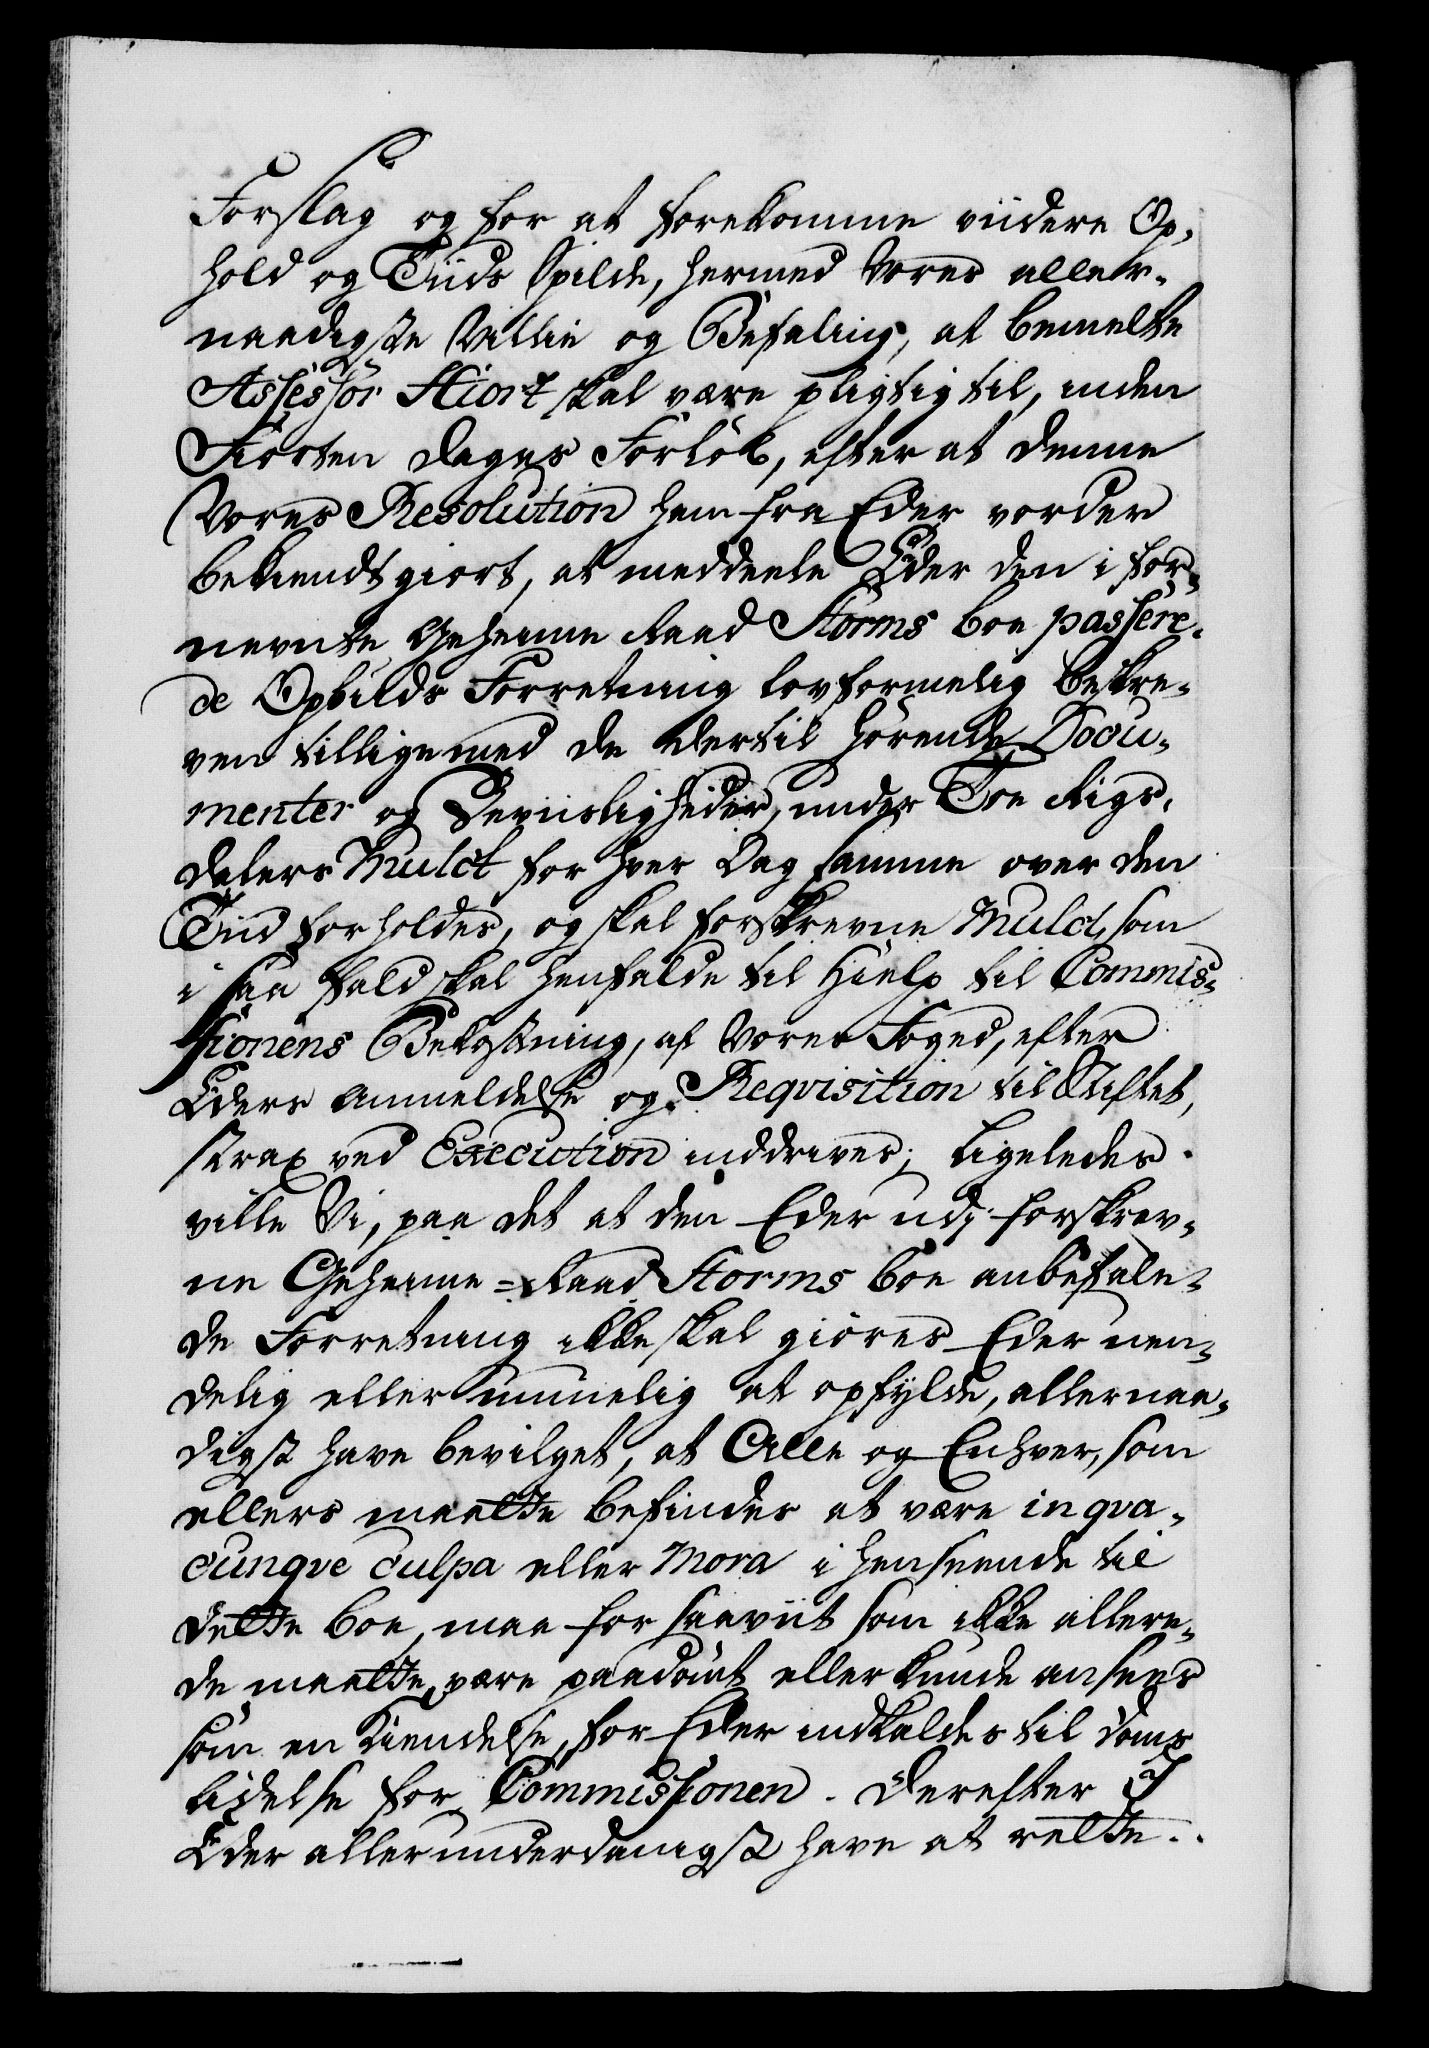 Forslag og for at forekomme viidere Op-
hold og Tiids Spilde, hermed Vores aller-
naadigste Villie og Befaling, at bemelte
Assessor Hiort skal være pligtig til, inden
Fiorten Dages Forløb, efter at denne
Vores Resolution ham fra Eder vorder
bekiendtgiort, at meddeele Eder den i for-
nevnte Geheime Raad Storms boe passere-
de Opbuds Forretning lovformelig beskre-
ven tilligemed de dertil hørende Docu-
menter og Beviisligheder, under Toe Rigs-
dalers Mulct for hver Dag samme over den
Tiid forholdes, og skal forskrevne Mulct, som
i saa fald skal henfalde til Hielp til Commis-
sionens Bekostning, af Vores Foged, efter
Eders Anmeldelse og Reqvisition til Stiftet,
strax ved Execution inddrives; Ligeledes
ville Vi, paa det at den Eder udj forskrev-
ne Geheime-Raad Storms boe anbefale-
de Forretning ikke skal giøres Eder uen-
delig eller umuelig at opfylde, allernaa-
digst have bevilget, at Alle og Enhver, som
ellers maatte befindes at være in qva-
cunqve culpa eller Mora i henseende til
dette boe, maa for saaviit som ikke allere-
de maatte være paadømt eller kunde ansees
som en Kiendelse, for Eder indkaldes til Doms
lidelse for Commissionen. Derefter I
Eder allerunderdanigst have at rette.